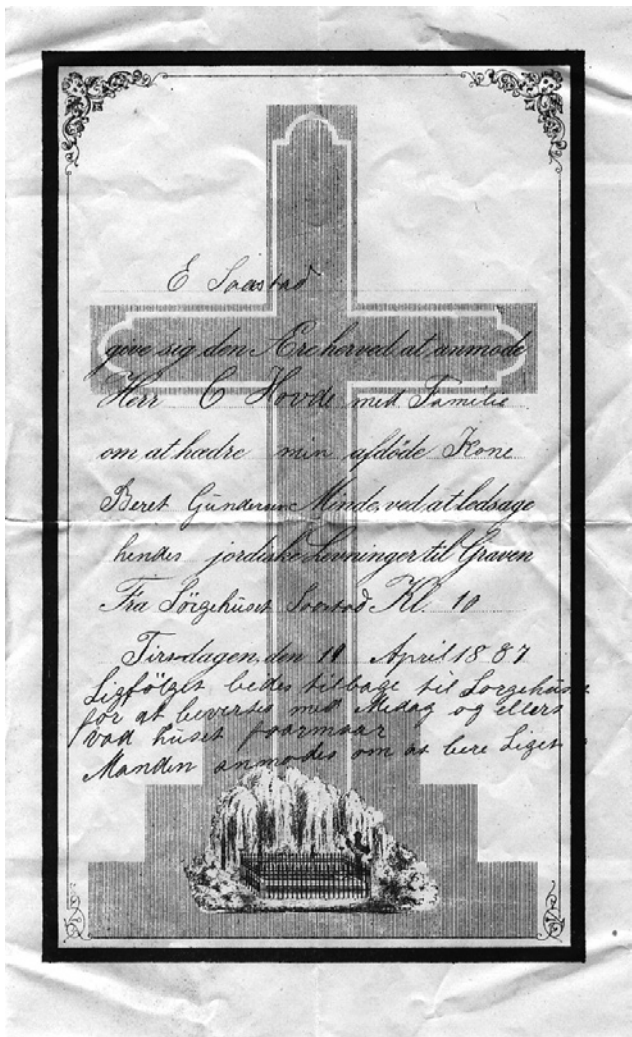 E Saastad
give sig den Ære herved at anmode
Herr C Hovde med Familie
om at hædre min afdöde Kone
Beret Minde, ved at ledsage
hendes jordiske Levninger til Graven
Fra Sörgehuset Saastad Kl. 10
Tirsdagen, den 19 April 1887
Ligfölget bedes tilbage til Sorgehuset
for at bevertes med Medag og ellers
vad huset foarmaar
Manden anmodes om at bere Liget